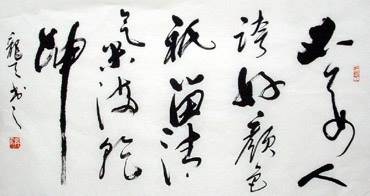 不要人
誇好顏色
祇留清
氣滿乾
坤